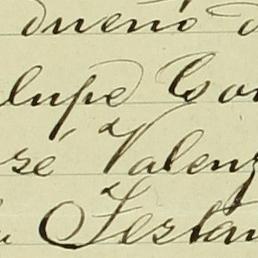 dueño d
lupe Gon
sé Valenz
Testam